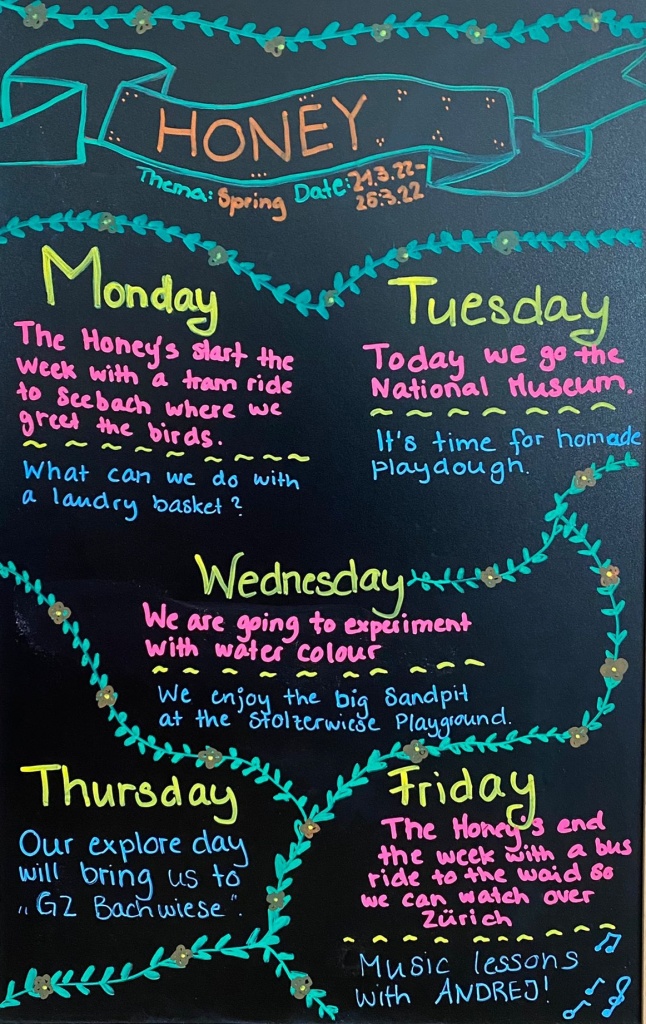 HONEY
Thema: Spring Date: 21.3.22-
25.3.22
Monday
The Honey's start the
week with a tram ride
to Seebach where we
greet the birds.
What can we do with
a landry basket?
Tuesday
Today we go the
National Museum.
It's time for homade
playdough.
Wednesday
We are going to experiment
with water colour
We enjoy the big Sandpit
at the Stolzerwiese Playground.
Thursday
Our explore day
will bring us to
„GZ Bachwiese".
Friday
The Honey's end
the week with a bus
ride to the waid so
we can watch over
Zürich
Music lessons
with ANDREJ!